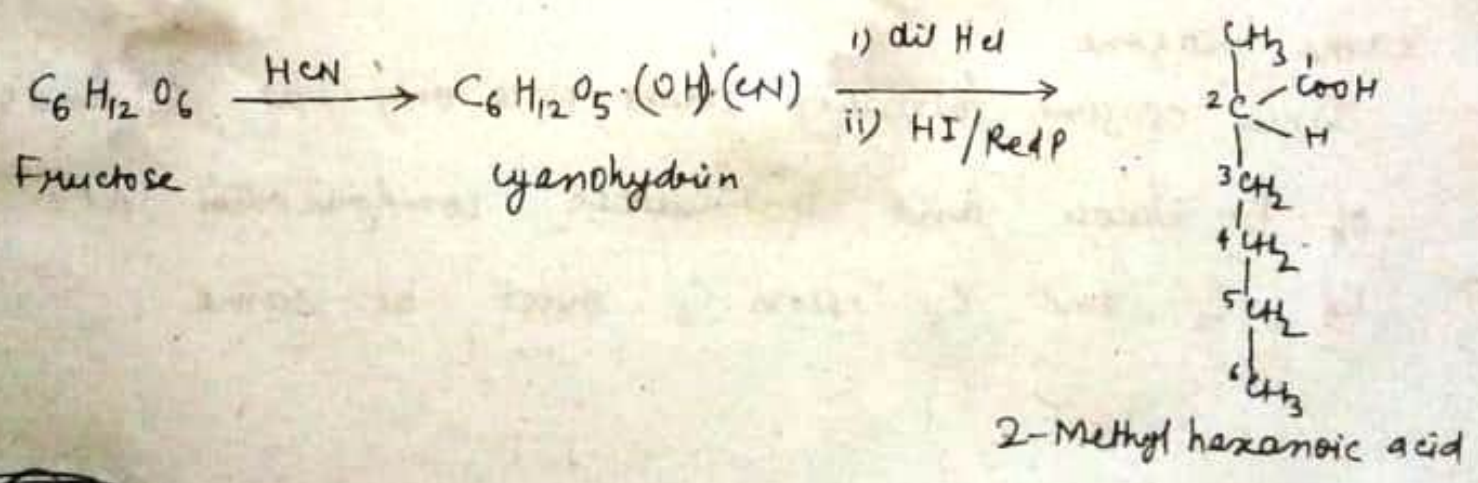 C6H12O6 HCN → C6H12O5·(OH)(CN) i) dil HCl ii) HI/Red P →
Fructose
Cyanohydrin
CH3
2C 1COOH
H
3CH2
4CH2
5CH2
6CH3
2-Methyl hexanoic acid